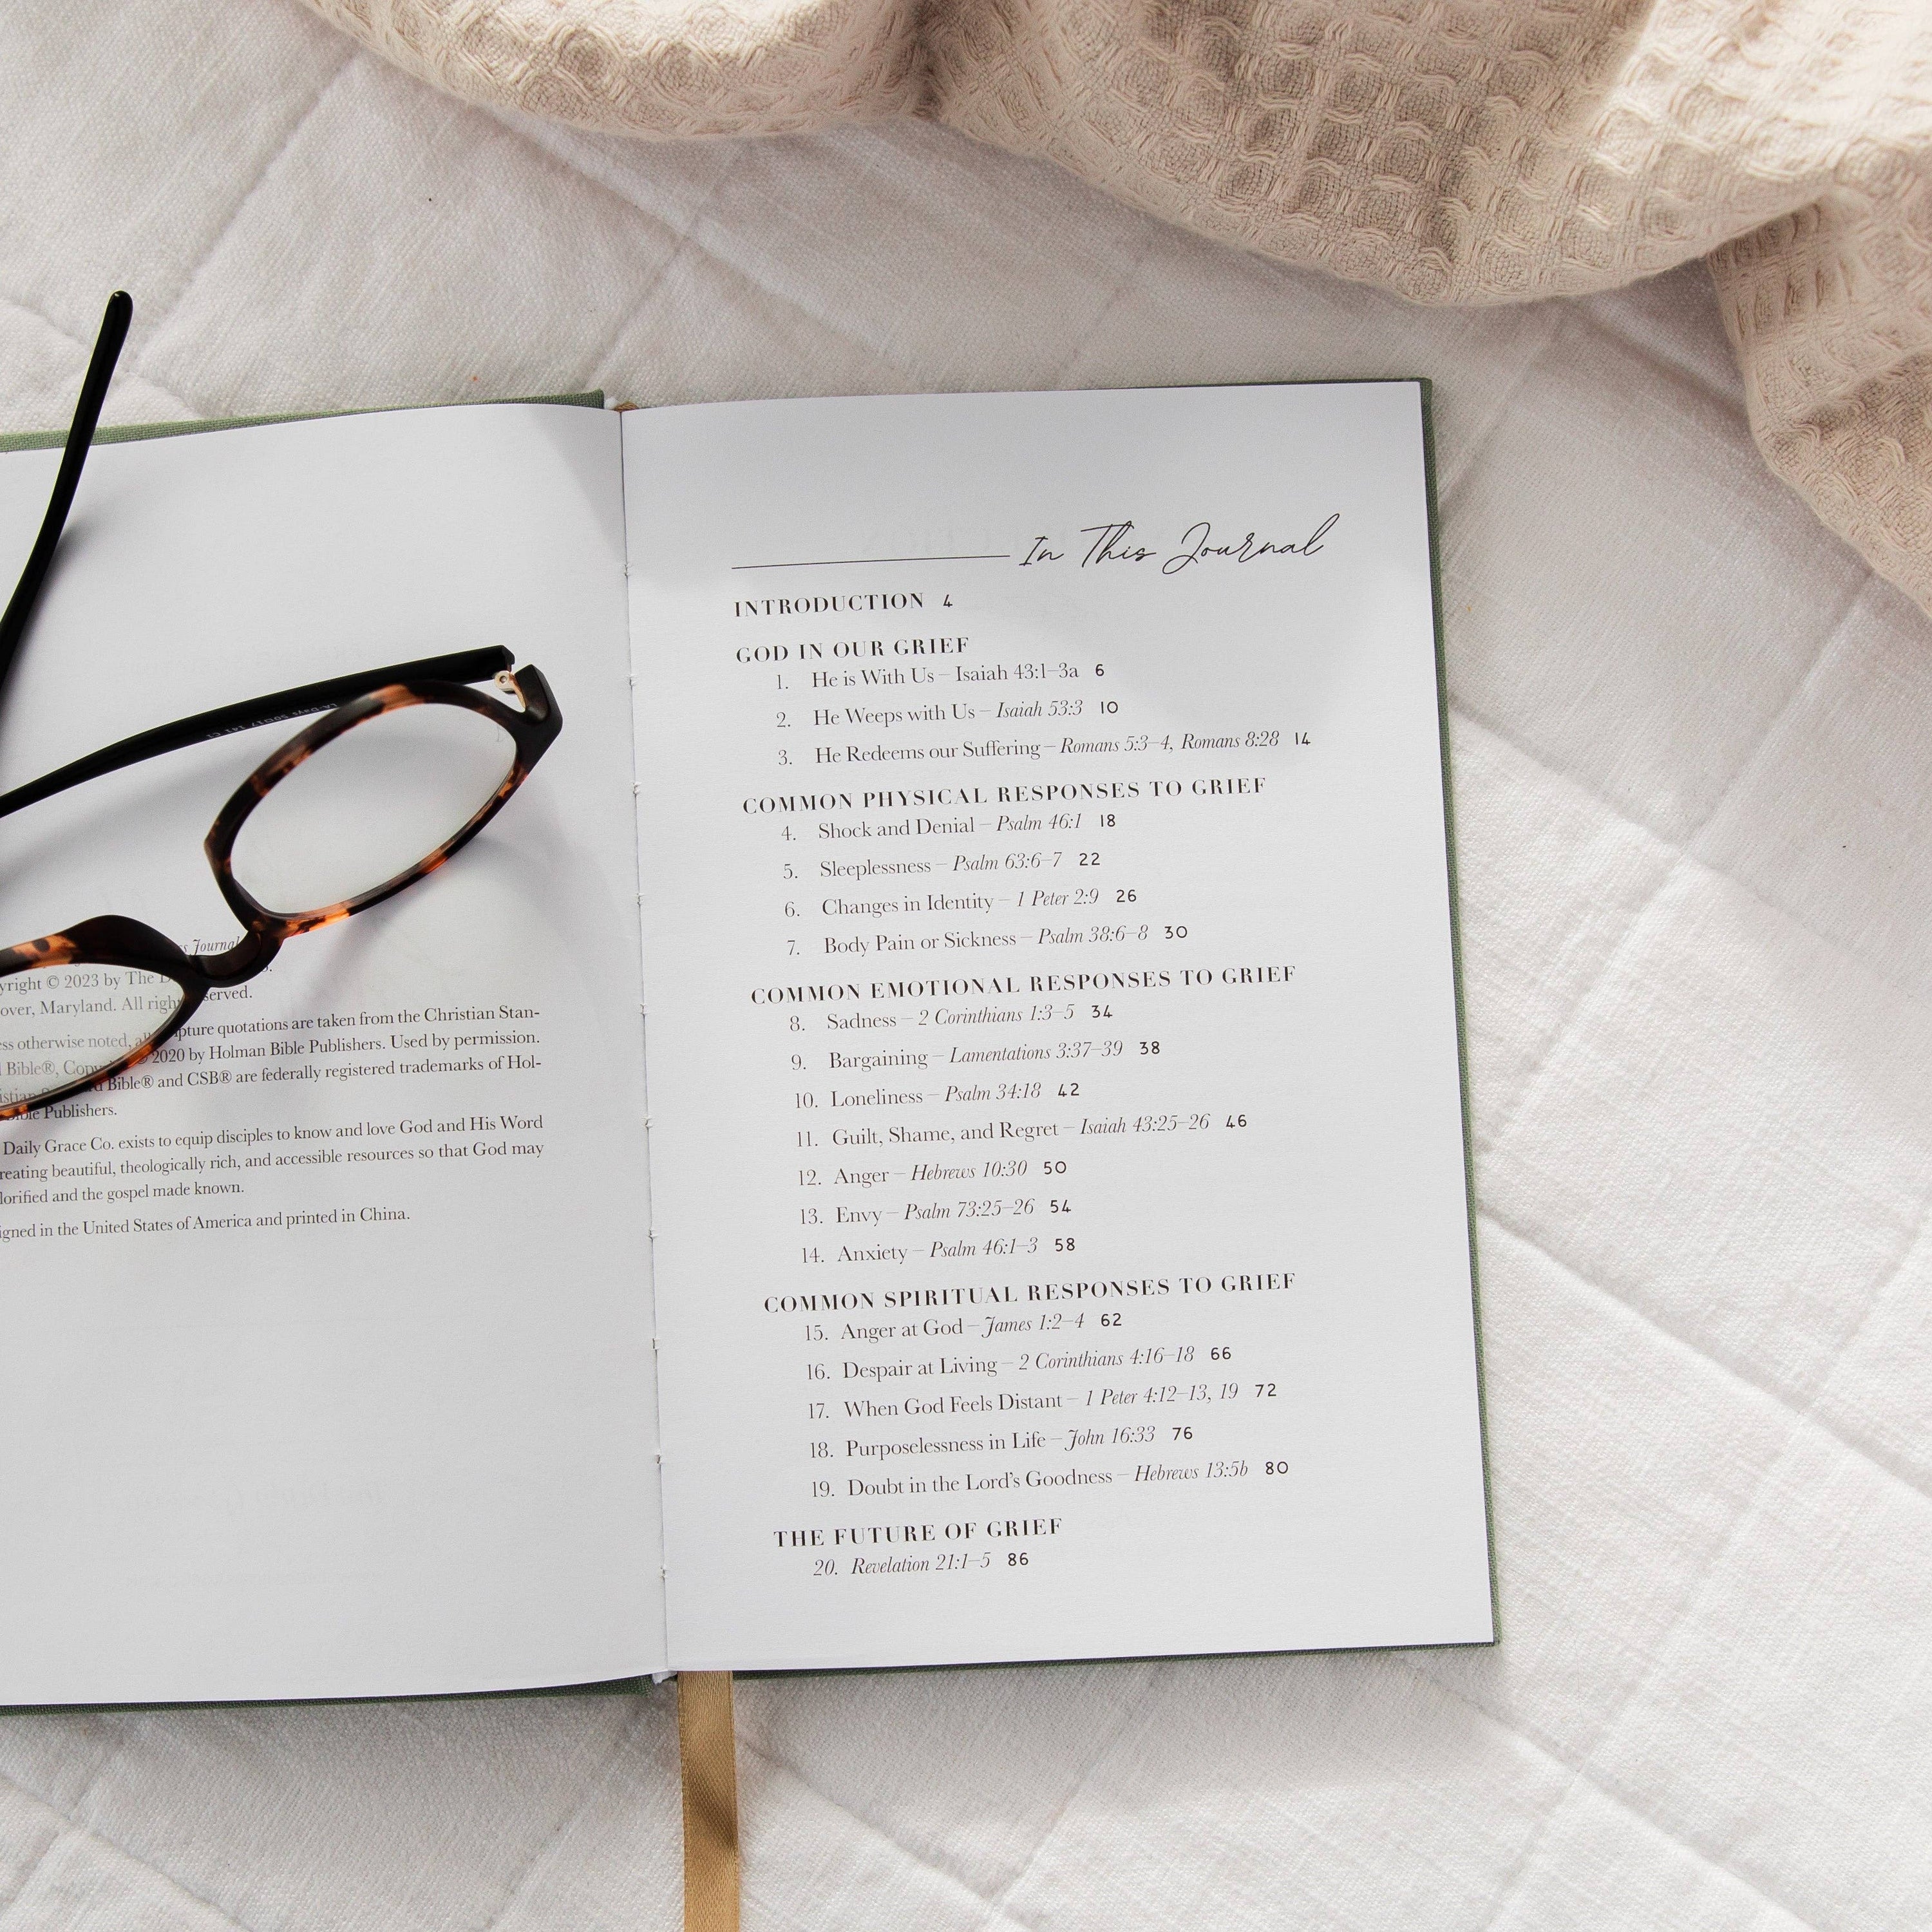 s Journal
yright © 2023 by The D
over, Maryland. All rights served.
ess otherwise noted, all scripture quotations are taken from the Christian Stan-
Bible®, Copy 2020 by Holman Bible Publishers. Used by permission.
istian Bible® and CSB® are federally registered trademarks of Hol-
Bible Publishers.
Daily Grace Co. exists to equip disciples to know and love God and His Word
reating beautiful, theologically rich, and accessible resources so that God may
lorified and the gospel made known.
igned in the United States of America and printed in China.
In This Journal
INTRODUCTION 4
GOD IN OUR GRIEF
1. He is With Us – Isaiah 43:1–3a 6
2. He Weeps with Us – Isaiah 53:3 10
3. He Redeems our Suffering – Romans 5:3–4, Romans 8:28 14
COMMON PHYSICAL RESPONSES TO GRIEF
4. Shock and Denial – Psalm 46:1 18
5. Sleeplessness – Psalm 63:6–7 22
6. Changes in Identity – 1 Peter 2:9 26
7. Body Pain or Sickness – Psalm 38:6–8 30
COMMON EMOTIONAL RESPONSES TO GRIEF
8. Sadness – 2 Corinthians 1:3–5 34
9. Bargaining – Lamentations 3:37–39 38
10. Loneliness – Psalm 34:18 42
11. Guilt, Shame, and Regret – Isaiah 43:25–26 46
12. Anger – Hebrews 10:30 50
13. Envy – Psalm 73:25–26 54
14. Anxiety – Psalm 46:1–3 58
COMMON SPIRITUAL RESPONSES TO GRIEF
15. Anger at God – James 1:2–4 62
16. Despair at Living – 2 Corinthians 4:16–18 66
17. When God Feels Distant – 1 Peter 4:12–13, 19 72
18. Purposelessness in Life – John 16:33 76
19. Doubt in the Lord's Goodness – Hebrews 13:5b 80
THE FUTURE OF GRIEF
20. Revelation 21:1–5 86